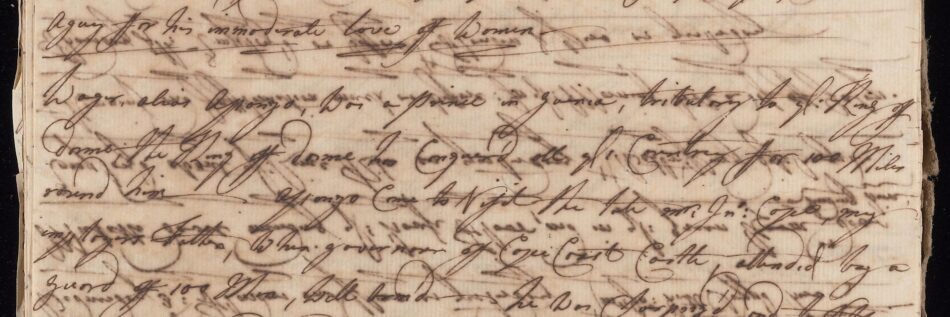 again for his immoderate love of Women
Wager, alias Apongo, was a Prince in Guinea, tributary to ye: King of
Dome. The King of Dome has Conquered all ye: Country for 100 Miles
round him. Apongo Came to Visit the late mr: Jno: Cope my
employers Father, When governour of Cape Coast Castle, attended by a
guard of 100 Men, well armed. He was Surprys'd and